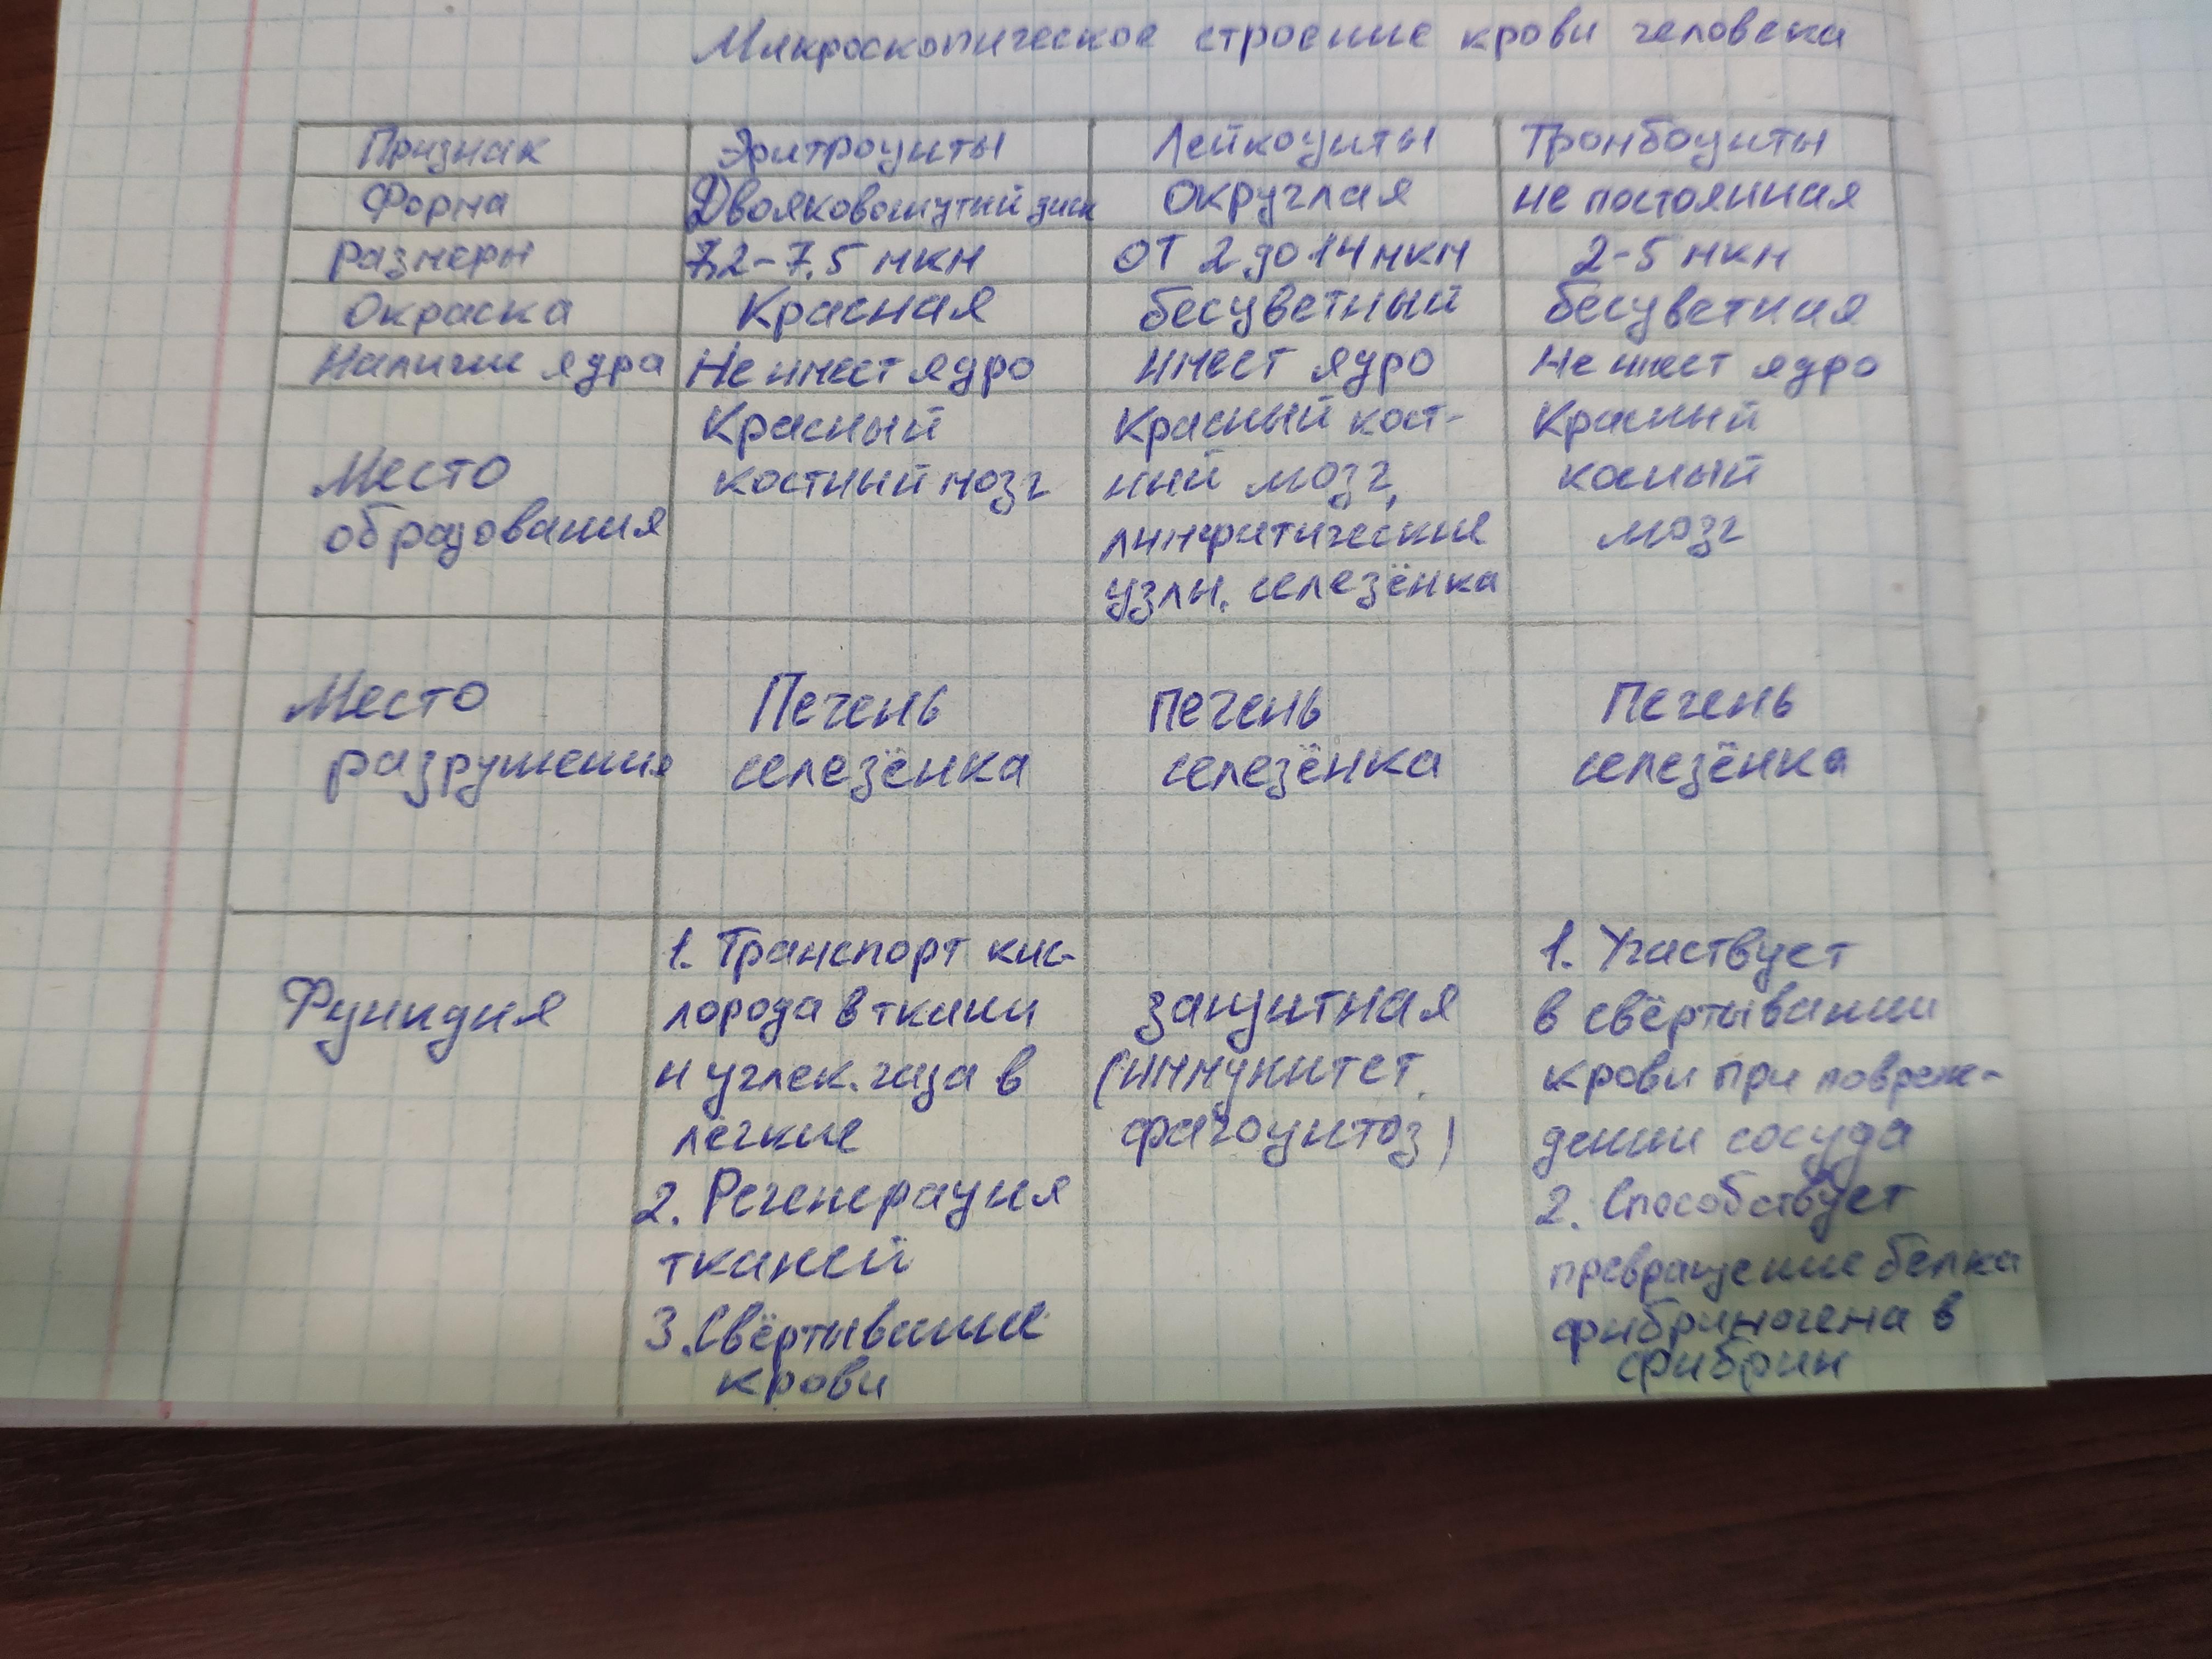 Микроскопическое строение крови человека
Признак Эритроциты Лейкоциты Тромбоциты
Форма Двояковогнутый диск Округлая не постоянная
размеры 7,2-7,5 мкм от 2 до 14 мкм 2-5 мкм
Окраска Красная бесцветный бесцветная
Наличие ядра Не имеет ядро имеет ядро Не имеет ядро
Место
образования
Красный
костный мозг
Красный кост-
ный мозг,
лимфитические
узлы. селезёнка
Красный
косный
мозг
Место
разрушения
Печень
селезёнка
печень
селезёнка
Печень
селезёнка
Функция
1. Транспорт кис-
лорода в ткани
и углек. газа в
легкие
2. Регенерация
тканей
3. Свёртывание
крови
защитная
(иммунитет,
фагоцитоз)
1. Участвует
в свёртывании
крови при повреж-
дении сосуда
2. Способствует
превращение белка
фибриногена в
фибрин